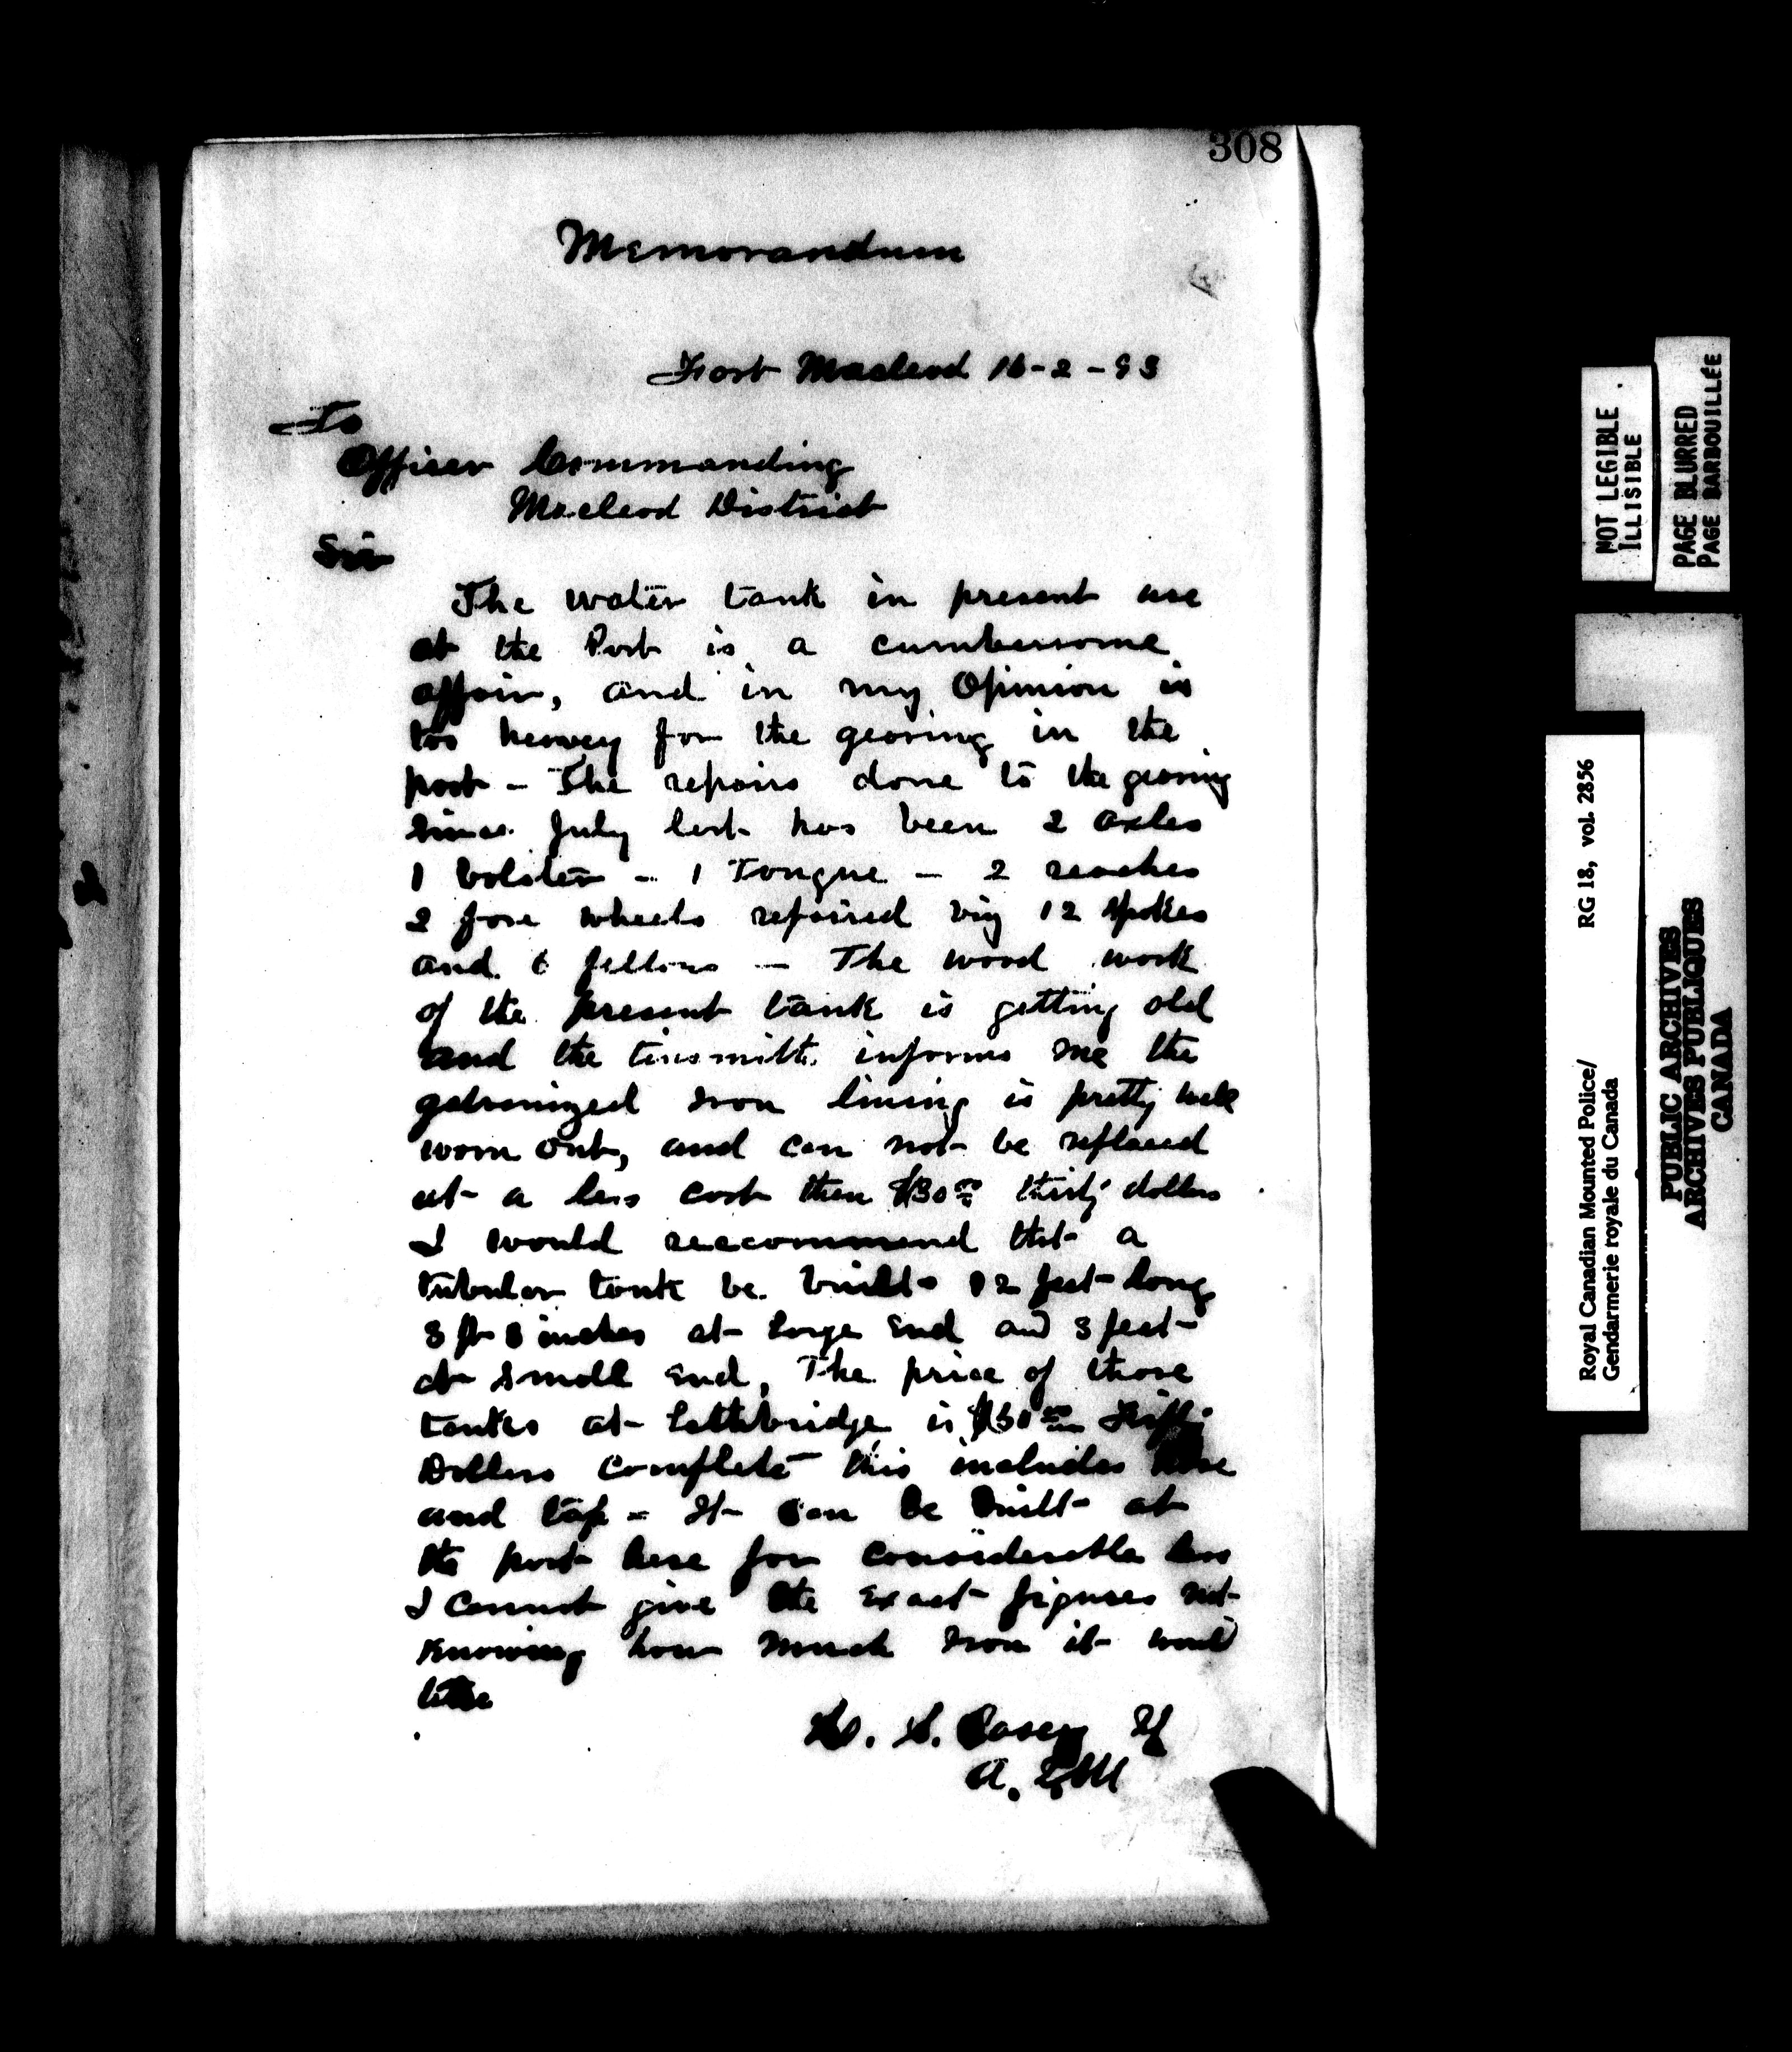 308
Memorandum
Fort Macleod 16-2-93
To
Officer Commanding
Macleod District
Sir
The water tank in present use
at the Post is a cumbersome
affair, and in my Opinion is
too heavey for the gearing in the
post - The repairs done to the gearing
since July last has been 2 axles
1 bolster - 1 Tongue - 2 reaches
2 fore wheels repaired viz 12 spokes
and 6 fellows - The wood work
of the present tank is getting old
and the tinsmith informs me the
galvanized Iron lining is pretty well
worn out, and can not be replaced
at a less cost then $30.00 thirty dollars
I would reecommend that a
tubular tank be built 12 feet long
3 ft 8 inches at large End and 3 feet
at small End, The price of those
tanks at Lethbridge is $50.00 Fifty
Dollars complete this includes hose
and tap - It can be built at
the post here for considerable less
I cannot give the Exact figures not
knowing how much Iron it would
take
Casey
NOT LEGIBLE
ILLISIBLE
PAGE BLURRED
PAGE BARBOUILLÉE
Royal Canadian Mounted Police/ RG 18, vol. 2856
Gendarmerie royale du Canada
PUBLIC ARCHIVES
ARCHIVES PUBLIQUES
CANADA